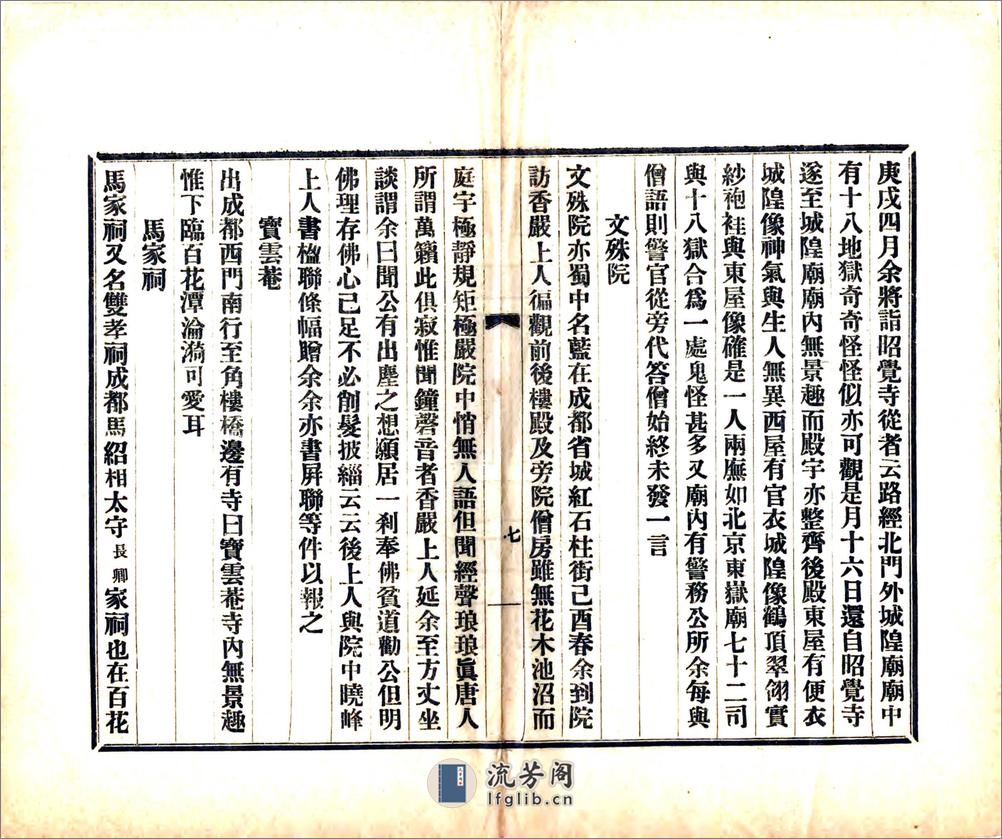 庚戌四月余將詣昭覺寺從者云路經北門外城隍廟廟中
有十八地獄奇奇怪怪似亦可觀是月十六日還自昭覺寺
遂至城隍廟廟內無景趣而殿宇亦整齊後殿東屋有便衣
城隍像神氣與生人無異西屋有官衣城隍像鶴頂翠翎實
紗袍褂與東屋像確是一人兩廡如北京東嶽廟七十二司
與十八獄合爲一處鬼怪甚多又廟內有警務公所余每與
僧語則警官從旁代答僧始終未發一言
文殊院
文殊院亦蜀中名藍在成都省城紅石柱街己酉春余到院
訪香嚴上人徧觀前後樓殿及旁院僧房雖無花木池沼而
七
庭宇極靜規矩極嚴院中悄無人語但聞經聲琅琅眞唐人
所謂萬籟此俱寂惟聞鐘磬音者香嚴上人延余至方丈坐
談謂余曰聞公有出塵之想願居一刹奉佛貧道勸公但明
佛理存佛心已足不必削髮披緇云云後上人與院中曉峰
上人書楹聯條幅贈余余亦書屏聯等件以報之
寶雲菴
出成都西門南行至角樓橋邊有寺曰寶雲菴寺內無景趣
惟下臨百花潭淪漪可愛耳
馬家祠
馬家祠又名雙孝祠成都馬紹相太守長卿家祠也在百花
流芳阁
lfglib.cn